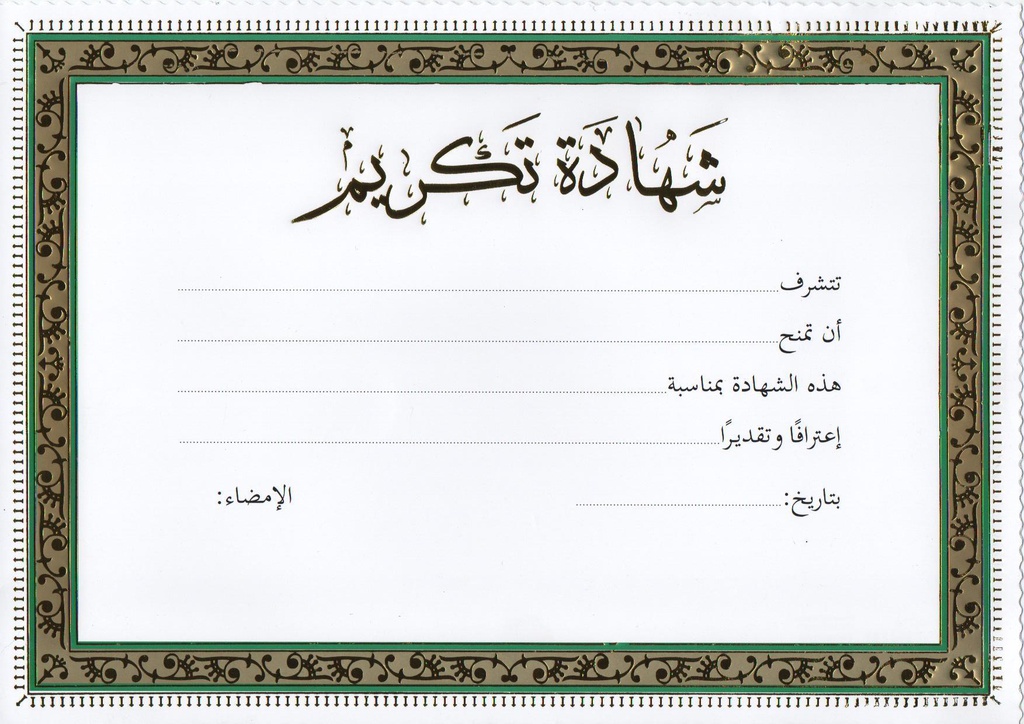 شَهَادَة تَكريم
تتشرف
أن تمنح
هذه الشهادة بمناسبة
إعترافًا وتقديرًا
بتاريخ: الإمضاء: